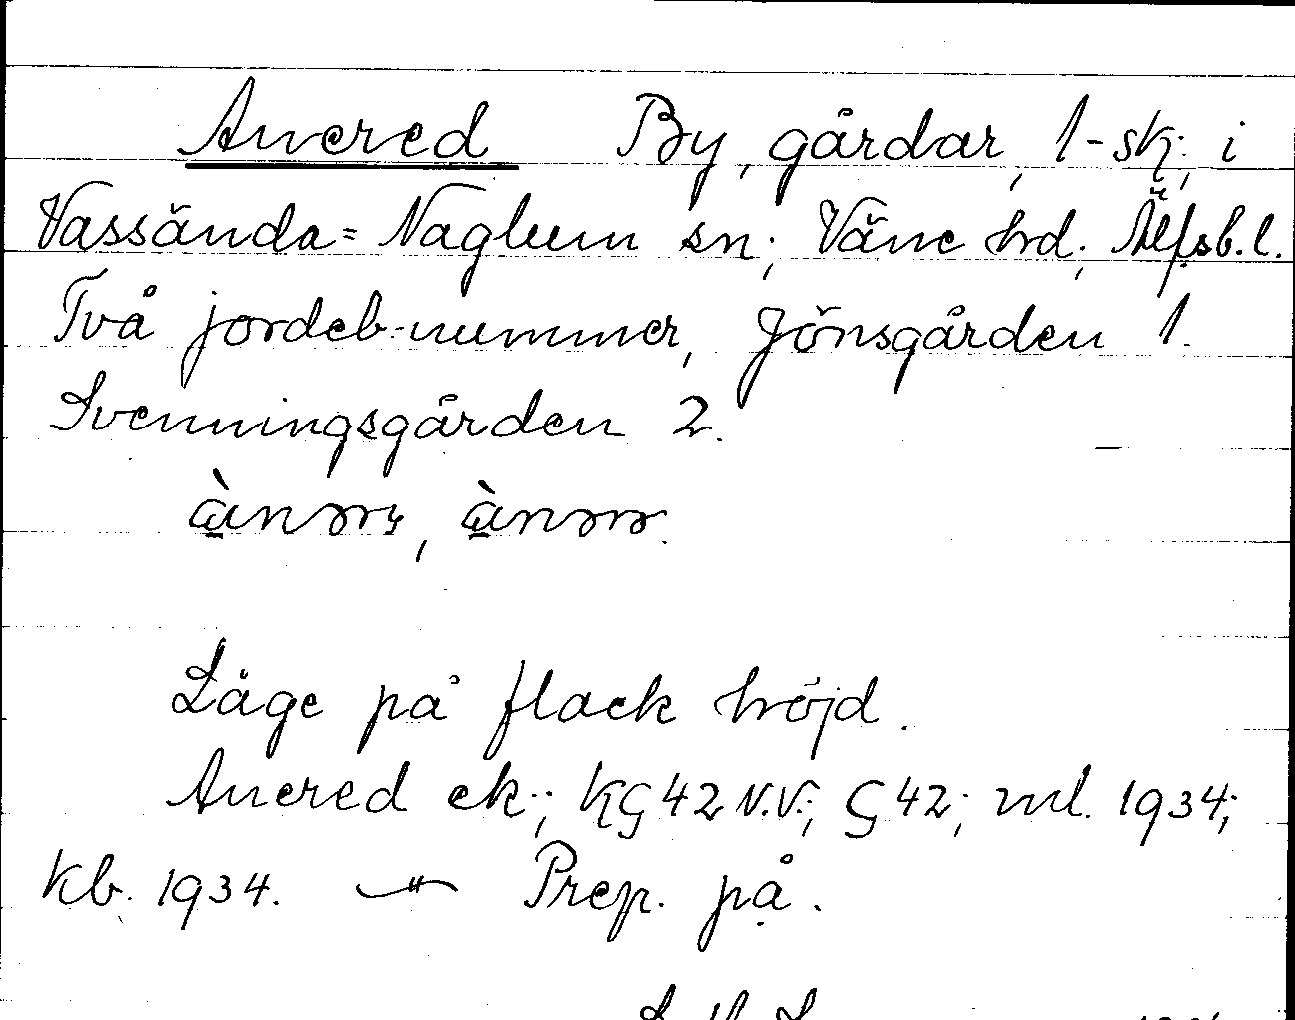 Anered By, gårdar, 1-sk; i
Vassända=Naglum sn; Väne hrd; Älfsb.l.
Två jordeb.-nummer, Jönsgården 1.
Svenningsgården 2.
Läge på flack höjd.
Anered ek.; KG 42 N.V.; G 42; ml. 1934;
Kb. 1934. — " — Prep. på.